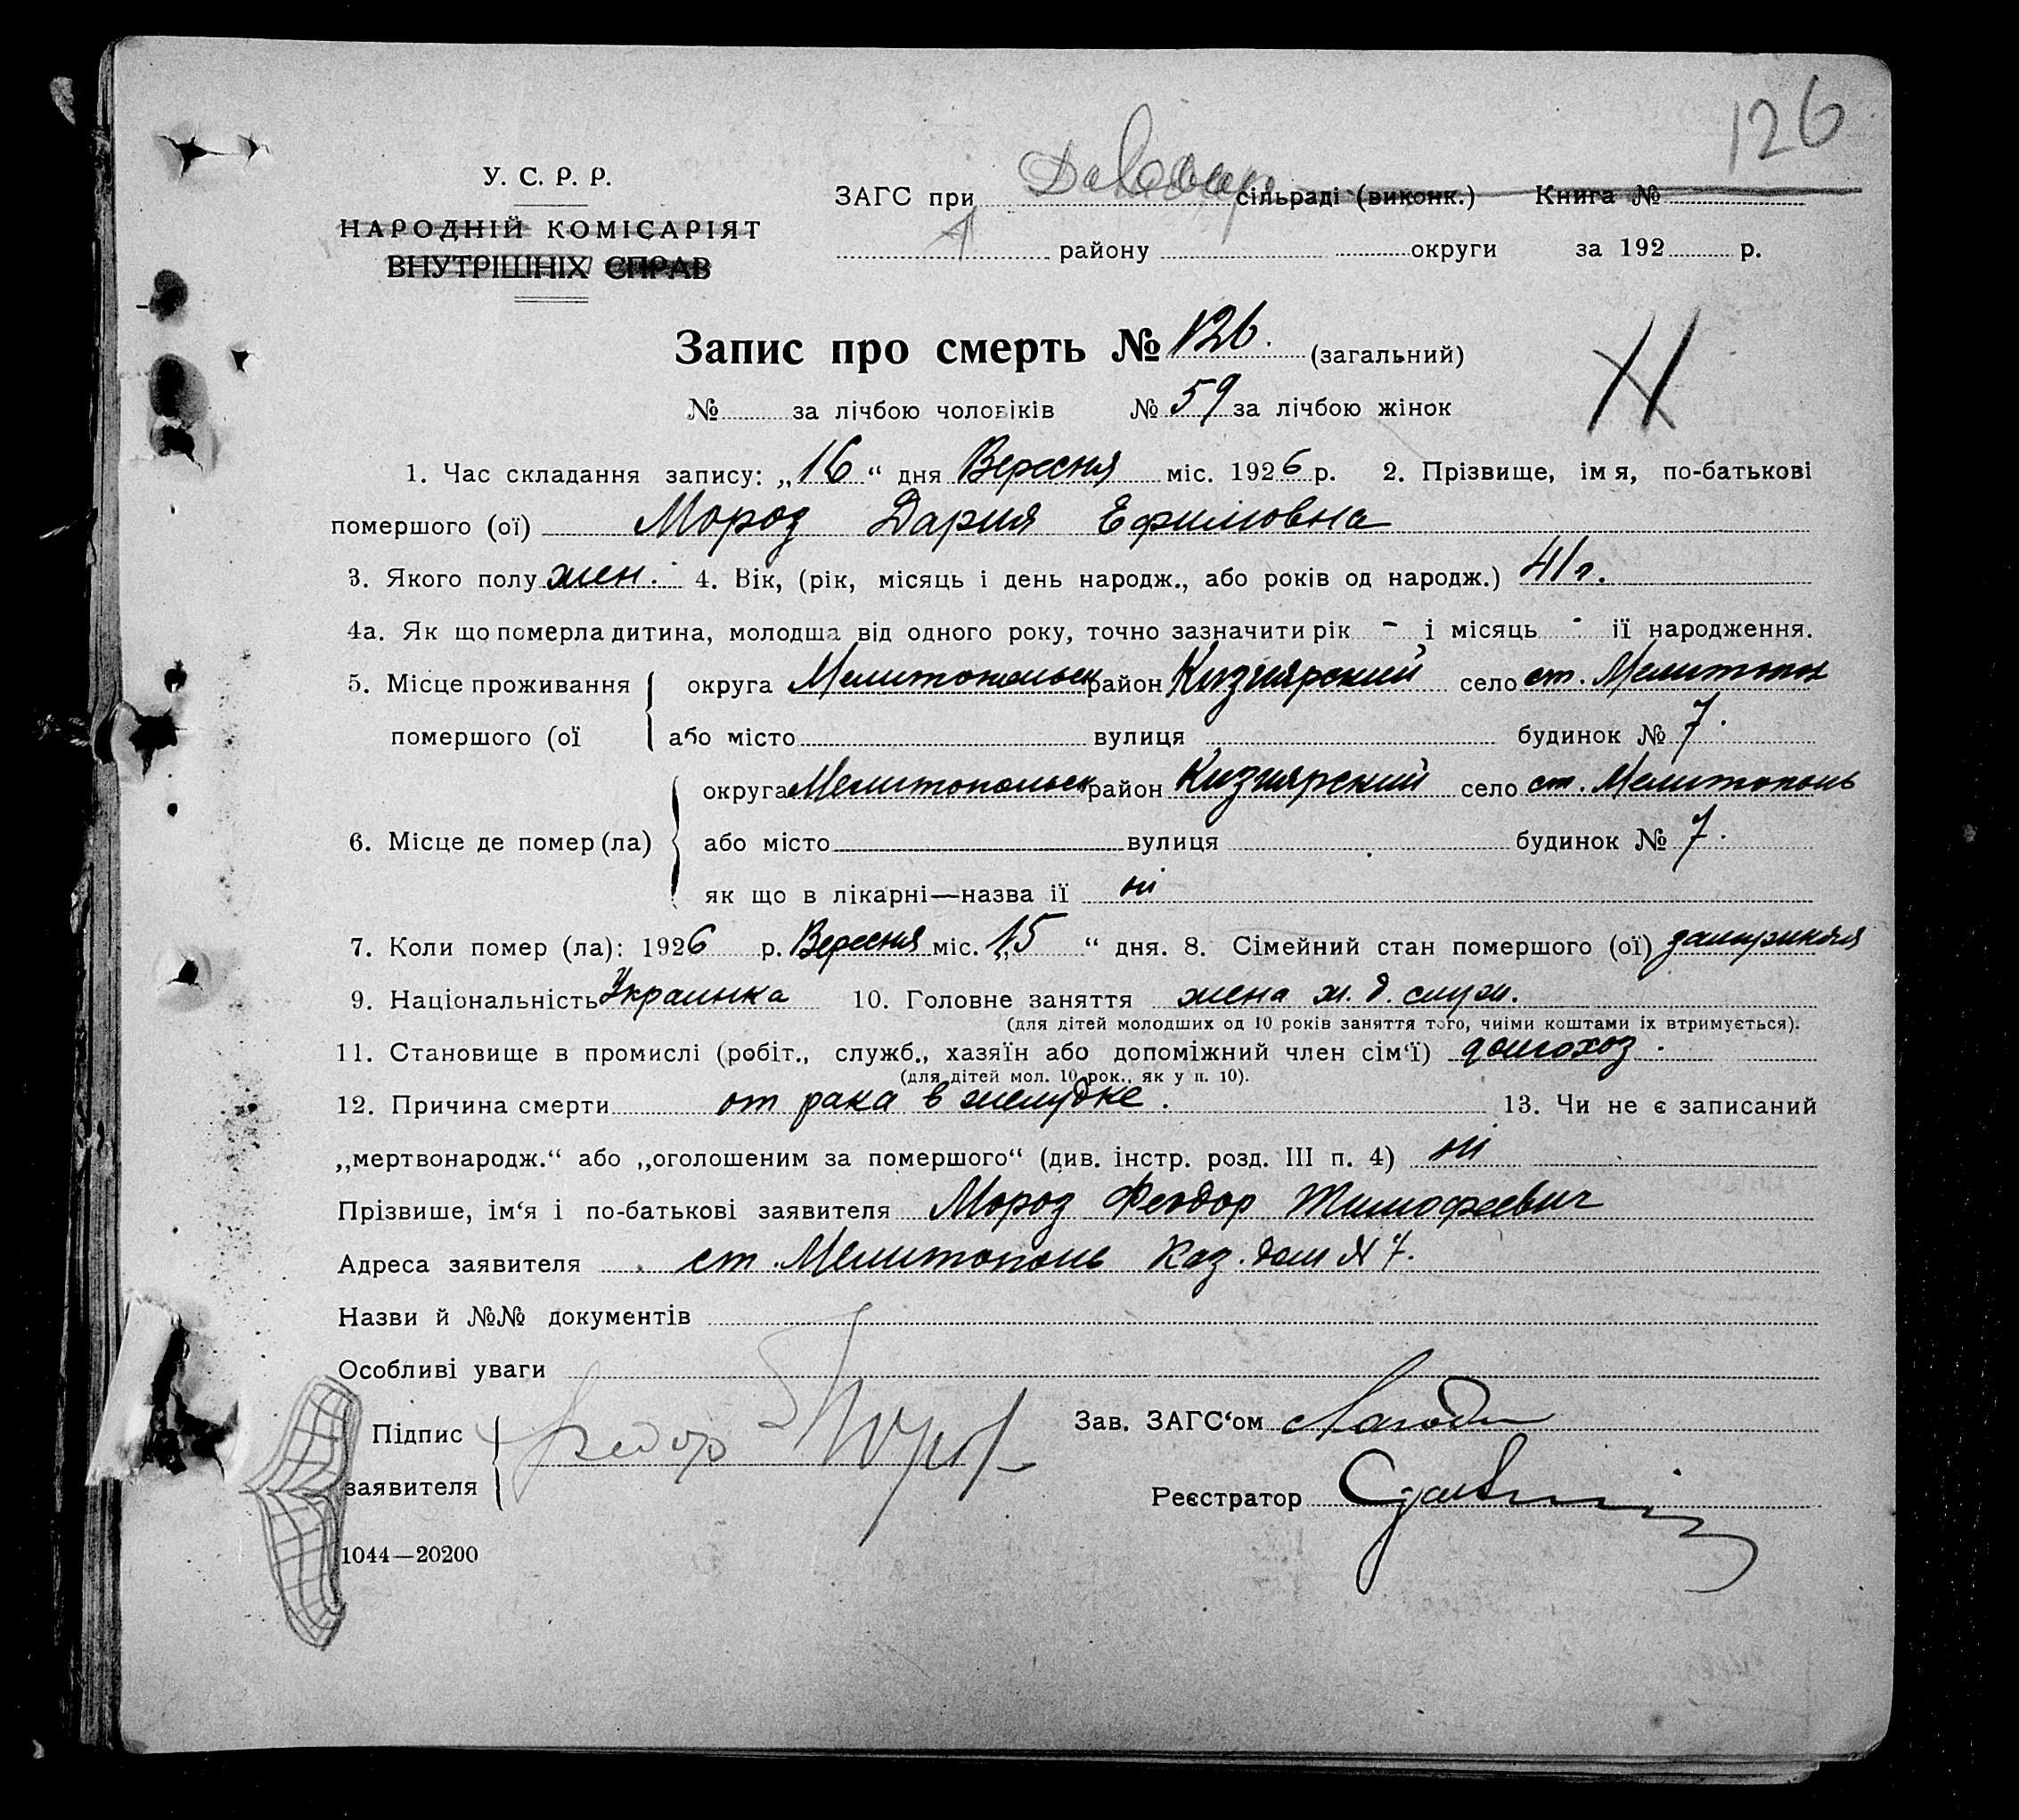 126
У. С. Р. Р.
НАРОДНІЙ КОМІСАРІЯТ
ВНУТРІШНІХ СПРАВ
ЗАГС при сільраді (виконк.) Книга №
району округи за 192 р.
Запис про смерть № 126. (загальний)
№ за лічбою чоловіків № 59 за лічбою жінок
1. Час складання запису: „16“ дня Вересня міс. 1926 р. 2. Прізвище, ім я, по-батькові
помершого (ої) Мороз Дария Ефимовна
3. Якого полу жен. 4. Вік, (рік, місяць і день народж., або років од народж.) 41 г.
4а. Як що померла дитина, молодша від одного року, точно зазначити рік - і місяць - ії народження.
5. Місце проживання округа Мелитопольск район Кизиярский село ст. Мелитопол
помершого (ої або місто вулиця будинок № 7.
округа Мелитопольск район Кизиярский село ст. Мелитополь
6. Місце де помер (ла) або місто вулиця будинок № 7.
як що в лікарні—назва ії ні
7. Коли помер (ла): 1926 р. Вересня міс. „15“ дня. 8. Сімейний стан помершого (ої)
9. Національність Украинка 10. Головне заняття жена ж. д. служ.
(для дітей молодших од 10 років заняття того, чиїми коштами іх втримується).
11. Становище в промислі (робіт., служб., хазяїн або допоміжний член сім‘ї) домохоз.
(для дітей мол. 10 рок., як у п. 10).
12. Причина смерти от рака в желудке. 13. Чи не є записаний
„мертвонародж.“ або „оголошеним за помершого“ (див. інстр. розд. III п. 4) ні
Прізвише, ім‘я і по-батькові заявителя Мороз Феодор Тимофеевич
Адреса заявителя ст. Мелитополь Каз. дом № 7.
Назви й №№ документів
Особливі уваги
Підпис
заявителя Федор Мороз
Зав. ЗАГС‘ом
Реєстратор
1044—20200